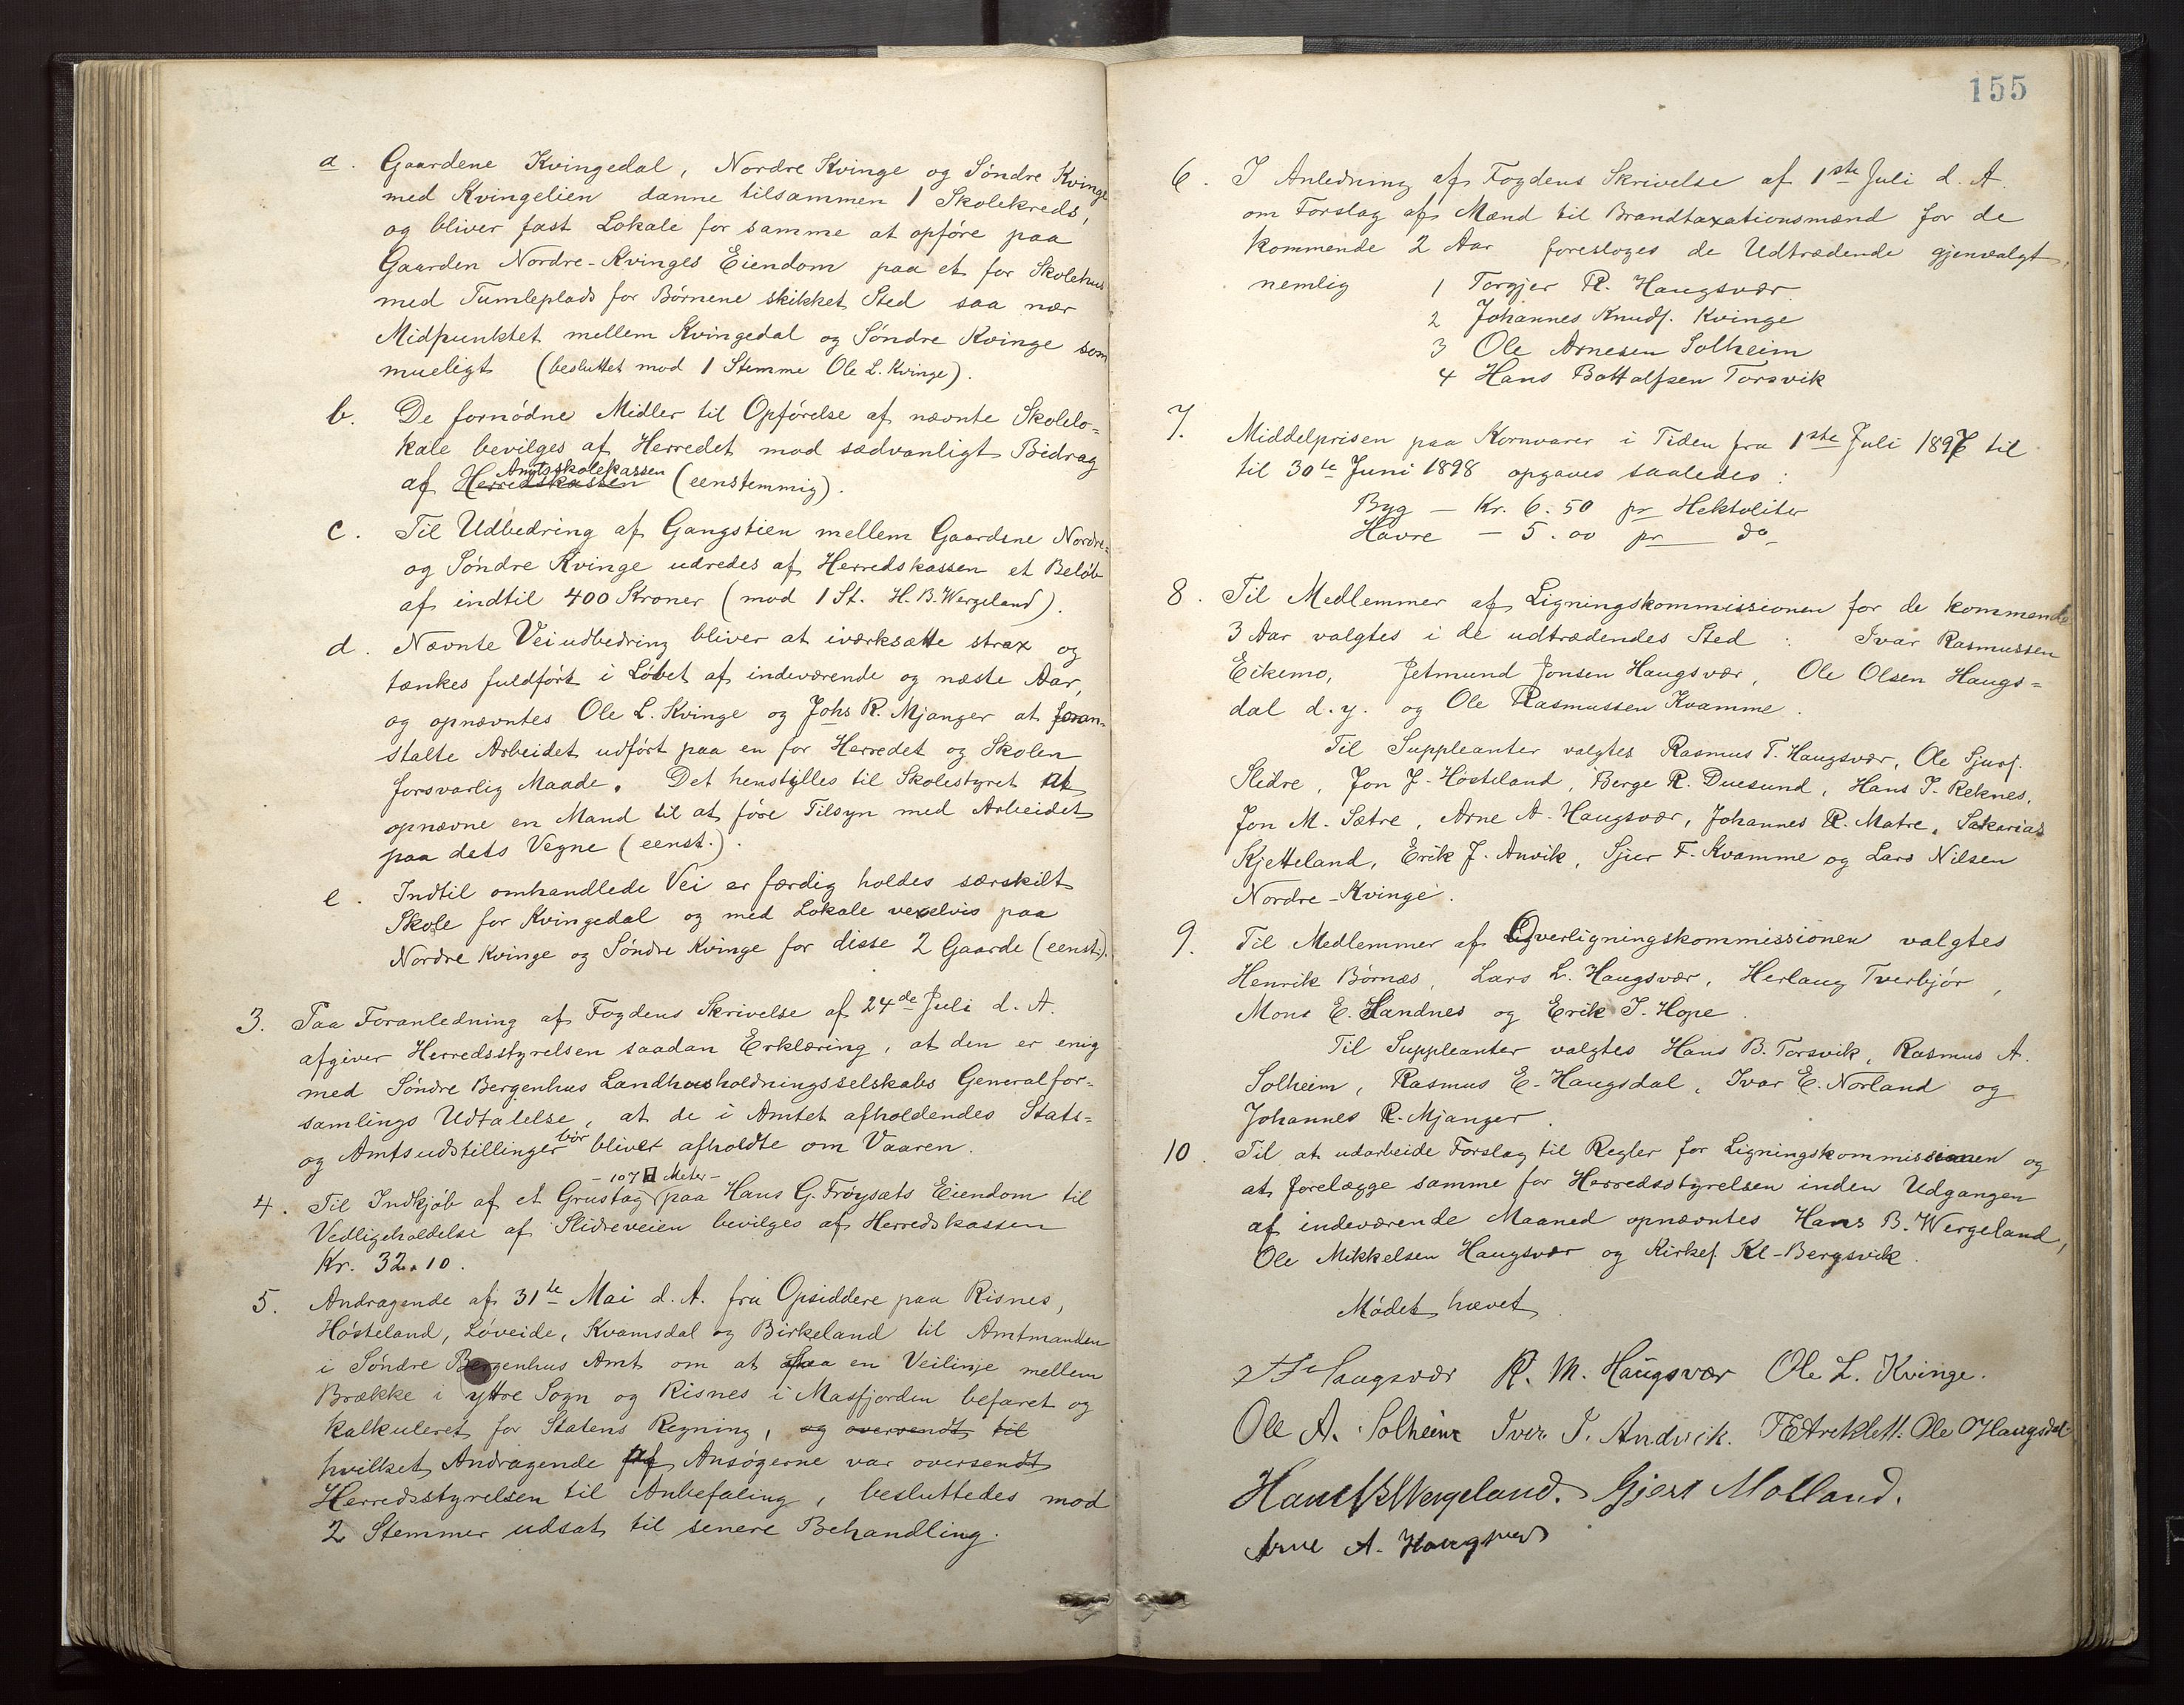 a. Gaardene Kvingedal, Nordre Kvinge og Söndre Kvinge
med Kvingelien danne tilsammen 1 Skolekreds,
og bliver fast Lokale for samme at opföre paa
Gaarden Nordre-Kvinges Eiendom paa et for Skolehus
med Tumleplads for Börnene skikket Sted saa nær
Midpunktet mellem Kvingedal og Söndre Kvinge som
mueligt (besluttet mod 1 Stemme Ole L. Kvinge).
b. De fornödne Midler til Opförelse af nævnte Skolelo=
kale bevilges af Herredet mod sædvanligt Bidrag
Amtsskolekassen
af Herredskassen (eenstemmig).
c. Til Udbedring af Gangstien mellem Gaardene Nordre=
og Söndre Kvinge udredes af Herredskassen et Belöb
af indtil 400 Kroner (mod 1 St. H. B. Wergeland).
d. Nævnte Veiudbedring bliver at iværksætte strax og
tænkes fuldfört i Löbet af indeværende og næste Aar,
og opnævntes Ole L. Kvinge og Johs R. Mjanger at foran=
stalte Arbeidet udfört paa en for Herredet og Skolen
forsvarlig Maade. Det henstilles til Skolestyret at
opnævne en Mand til at före Tilsyn med Arbeidet
paa dets Vegne (eenst.).
e. Indtil omhandlede Vei er færdig holdes særskilt
Skole for Kvingedal og med Lokale vexelvis paa
Nordre Kvinge og Söndre Kvinge for disse 2 Gaarde (eenst.).
3. Paa Foranledning af Fogdens Skrivelse af 24de Juli d. A.
afgiver Herredsstyrelsen saadan Erklæring, at den er enig
med Söndre Bergenhus Landhusholdningsselskabs Generalfor=
samlings Udtalelse, at de i Amtet afholdendes Stats=
og Amtsudstillinger bör blivet afholdte om Vaaren.
- 107 □ Meter -
4. Til Indkjöb af et Grustag paa Hans G. Fröysæts Eiendom til
Vedligeholdelse af Slidreveien bevilges af Herredskassen
Kr. 32.10.
5. Andragende af 31te Mai d. A. fra Opsiddere paa Risnes,
Hösteland, Löveide, Kvamsdal og Birkeland til Amtmanden
i Söndre Bergenhus Amt om at faa en Veilinje mellem
Brække i yttre Sogn og Risnes i Masfjorden befaret og
kalkuleret for Statens Regning, og oversendt til
hvilket Andragende af Ansögerne var oversendt
Herredsstyrelsen til Anbefaling, besluttedes mod
2 Stemmer udsat til senere Behandling.
155
6. I Anledning af Fogdens Skrivelse af 1ste Juli d. A.
om Forslag af Mænd til Brandtaxationsmænd for de
kommende 2 Aar foresloges de Udtrædende gjenvalgt,
nemlig 1 Torgjer R. Haugsvær
2 Johannes Knuds. Kvinge
3 Ole Arnesen Solheim
4 Hans Bottolfsen Torsvik
7. Middelprisen paa Kornvarer i Tiden fra 1ste Juli 1897 til
til 30te Juni 1898 opgaves saaledes:
Byg - Kr. 6.50 pr Hektoliter
Havre - 5.00 pr do
8. Til Medlemmer af Ligningskommissionen for de kommende
3 Aar valgtes i de udtrædendes Sted: Ivar Rasmussen
Eikemo, Jetmund Jonsen Haugsvær, Ole Olsen Haugs=
dal d. y. og Ole Rasmussen Kvamme.
Til Suppleanter valgtes Rasmus T. Haugsvær, Ole Sjurs.
Slidre, Jon J. Hösteland, Berge R. Duesund, Hans J. Reknes,
Jon M. Sætre, Arne A. Haugsvær, Johannes R. Matre, Sakarias
Kjetteland, Erik J. Anvik, Sjur F. Kvamme og Lars Nilsen
Nordre-Kvinge.
9. Til Medlemmer af Overligningskommissionen valgtes
Henrik Börnæs, Lars L. Haugsvær, Herlaug Tverbjör,
Mons E. Handnes og Erik J. Hope.
Til Suppleanter valgtes Hans B. Torsvik, Rasmus A.
Solheim, Rasmus E. Haugsdal, Ivar E. Norland og
Johannes R. Mjanger.
10 Til at udarbeide Forslag til Regler for Ligningskommissionen og
at forelægge samme for Herredsstyrelsen inden Udgangen
af indeværende Maaned opnævntes Hans B. Wergeland,
Ole Mikkelsen Haugsvær og Kirkes. Kl-Bergsvik.
Mödet hævet.
Haugsvær R. M. Haugsvær Ole L. Kvinge.
Ole A. Solheim Iver J. Andvik. Ole O Haugsdal
Hans B Wergeland. Gjert Molland.
Arne A. Haugsvær